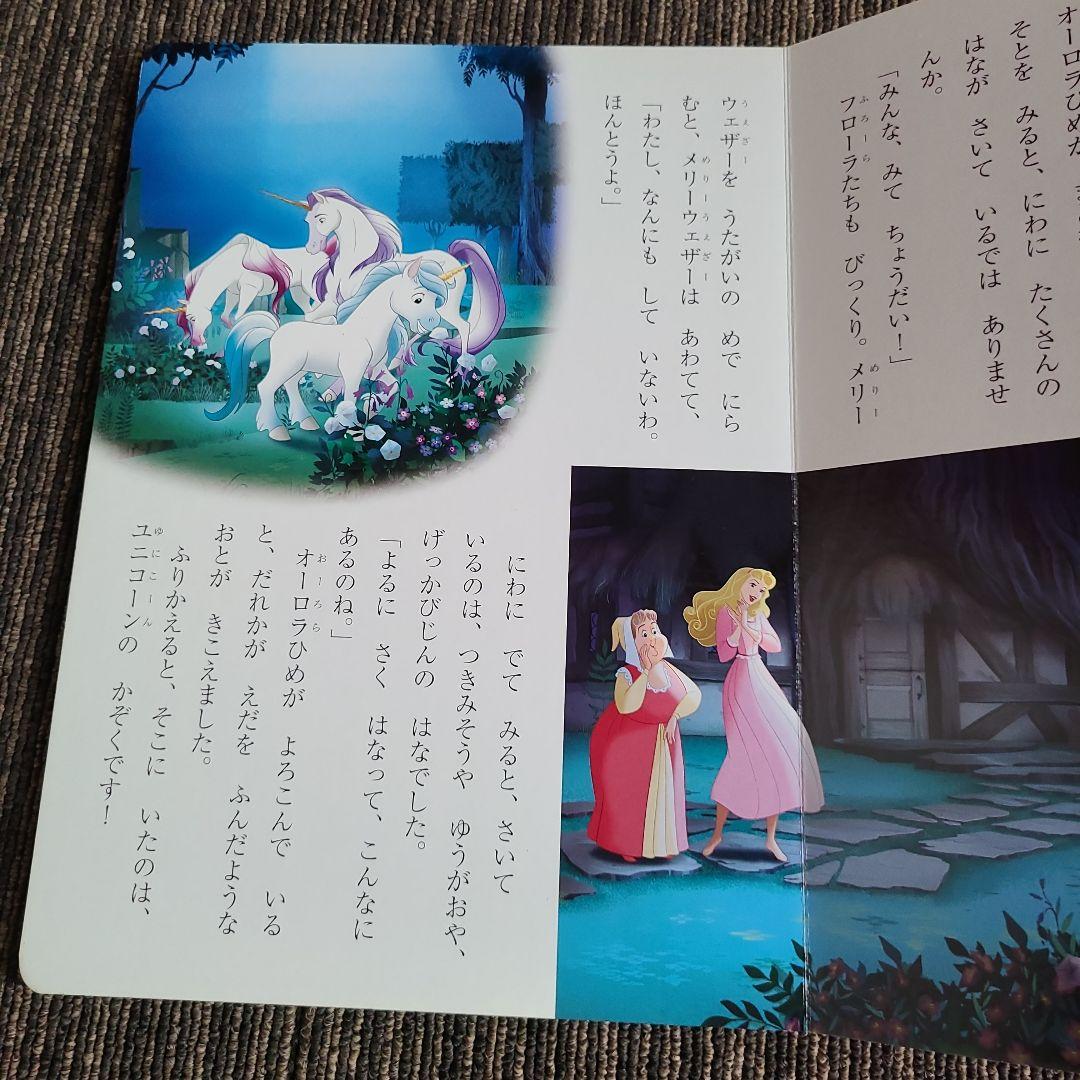 オーロラひめが
そとを みると、にわに たくさんの
はなが さいて いるでは ありませ
んか。
「みんな、みて ちょうだい！」
フローラたちも びっくり。メリー
ウェザーを うたがいの めで にら
むと、メリーウェザーは あわてて、
「わたし、なんにも して いないわ。
ほんとうよ。」
にわに でて みると、さいて
いるのは、つきみそうや ゆうがおや、
げっかびじんの はなでした。
「よるに さく はなって、こんなに
あるのね。」
オーロラひめが よろこんで いる
と、だれかが えだを ふんだような
おとが きこえました。
ふりかえると、そこに いたのは、
ユニコーンの かぞくです！